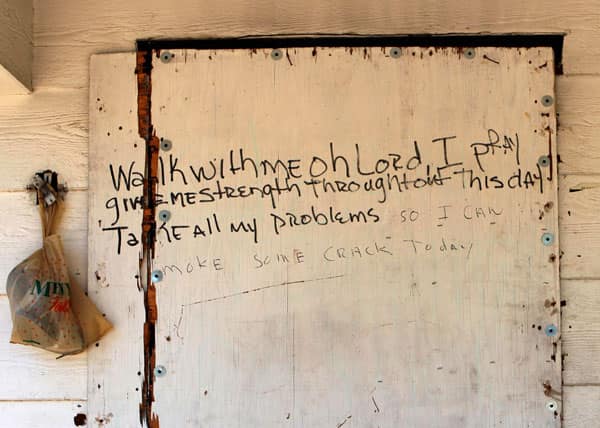 Walk with me oh Lord, I pray
give me strength throughtout This day
Take All my problems so I can
smoke some crack today